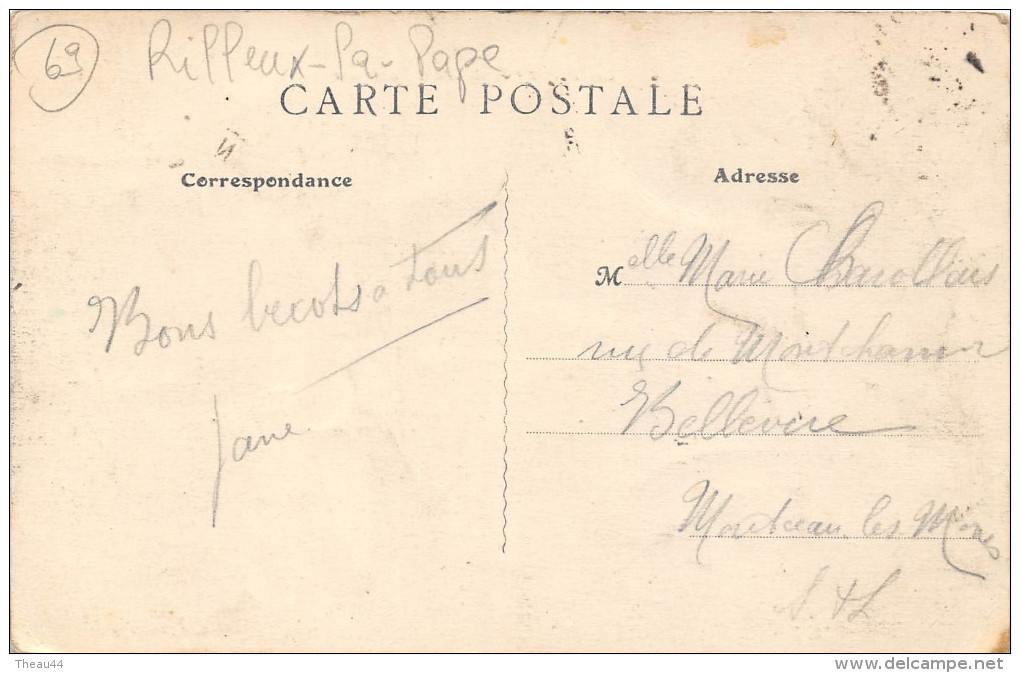 69
Rilleux-la-Pape
CARTE POSTALE
Correspondance
Adresse
Bons becots a tous
Jane
Melle Marie Charollais
rue de Montchanin
Bellevue
Montceau les Mines
S. & L
Theau44
www.delcampe.net